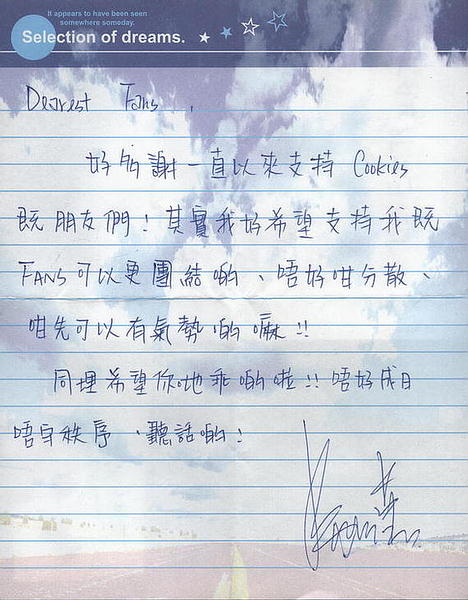 It appears to have been seen
somewhere someday.
Selection of dreams.
Dearest Fans,
好多謝一直以來支持 Cookies
既朋友們！其實我好希望支持我既
FANS可以更團結啲、唔好咁分散、
咁先可以有氣勢啲嘛!!
同埋希望你哋乖啲啦!! 唔好成日
唔守秩序、聽話啲！